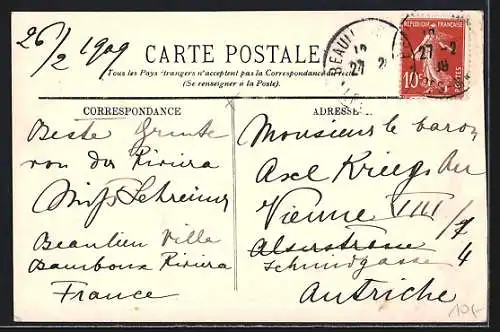 26/2 1909
CARTE POSTALE
Tous les Pays étrangers n'acceptent pas la Correspondance
(Se renseigner à la Poste).
CORRESPONDANCE
ADRESSE
RÉPUBLIQUE FRANÇAISE
10c
POSTES
BEAULI
27 2
27 2
09
Beste Grüsse
von der Riviera
Beaulieu Villa
Bamboux Riviera
France
Monsieur le baron
Axel
Vienne VIII/7
Alserstrasse 4
Schmidgasse
Autriche
10,-